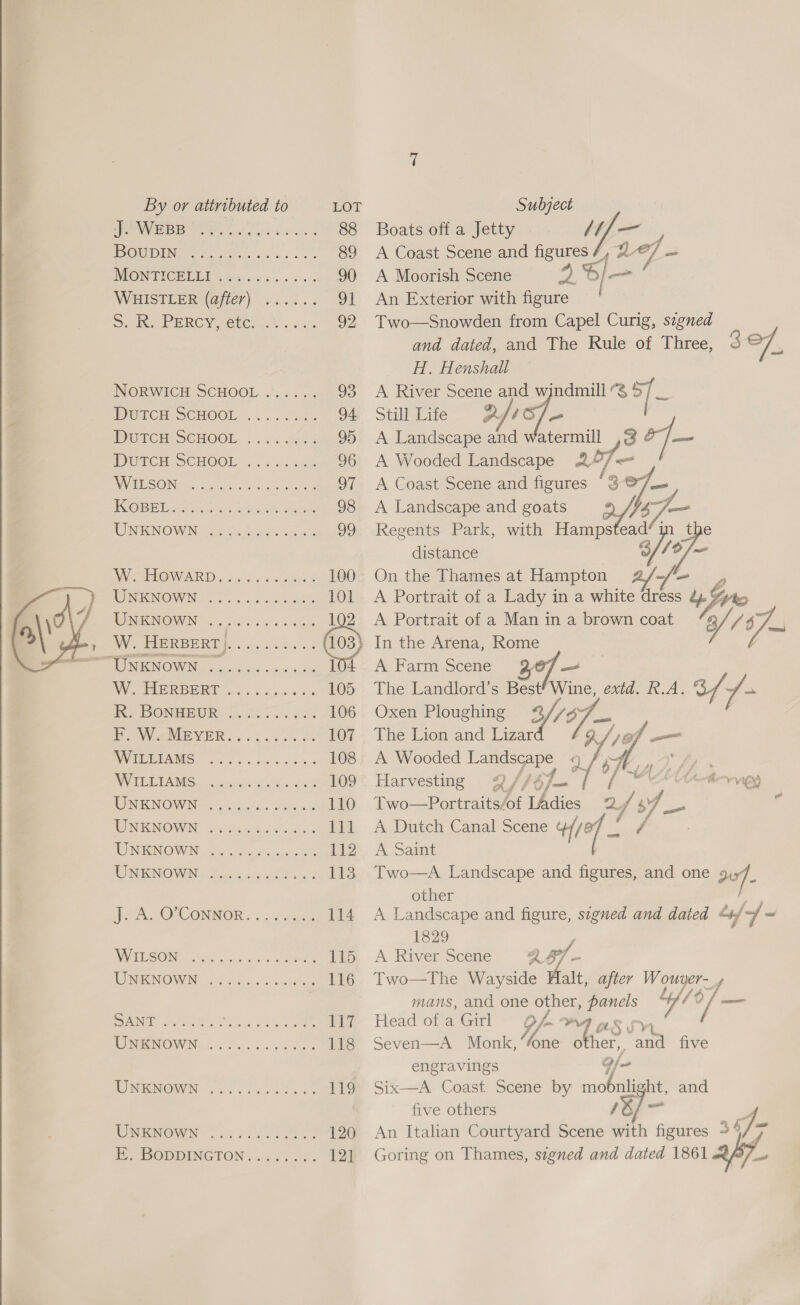 7
By or attributed to LOT Subject
J. WEBB .......... 88 Boats off a Jetty
BOUDIN .......... 89 A Coast Scene and figures
MONTICELLI .......... 90 A Moorish Scene
WHISTLER (after) ...... 91 An Exterior with figure
S. R. PERCY, etc. ...... 92 Two—Snowden from Capel Curig, signed
and dated, and The Rule of Three, 30/-
H. Henshall
NORWICH SCHOOL ...... 93 A River Scene and windmill
DUTCH SCHOOL ........ 94 Still Life
DUTCH SCHOOL ........ 95 A Landscape and watermill
DUTCH SCHOOL ........ 96 A Wooded Landscape 20/-
WILSON .......... 97 A Coast Scene and figures 30/-
KOBEL .......... 98 A Landscape and goats
UNKNOWN .......... 99 Regents Park, with Hampstead in the
distance
W. HOWARD .......... 100 On the Thames at Hampton
UNKNOWN .......... 101 A Portrait of a Lady in a white dress
UNKNOWN .......... 102 A Portrait of a Man in a brown coat
W. HERBERT .......... 103 In the Arena, Rome
UNKNOWN .......... 104 A Farm Scene 20/-
W. HERBERT .......... 105 The Landlord's Best Wine, extd. R.A.
R. BONHEUR .......... 106 Oxen Ploughing
F. W. MEYER .......... 107 The Lion and Lizard
WILLIAMS .......... 108 A Wooded Landscape
WILLIAMS .......... 109 Harvesting
UNKNOWN .......... 110 Two—Portraits of Ladies
UNKNOWN .......... 111 A Dutch Canal Scene
UNKNOWN .......... 112 A Saint
UNKNOWN .......... 113 Two—A Landscape and figures, and one
other
J. A. O'CONNOR ........ 114 A Landscape and figure, signed and dated
1829
WILSON .......... 115 A River Scene
UNKNOWN .......... 116 Two—The Wayside Halt, after Wouver-
mans, and one other, panels
SANT .......... 117 Head of a Girl
UNKNOWN .......... 118 Seven—A Monk, one other, and five
engravings
UNKNOWN .......... 119 Six—A Coast Scene by moonlight, and
five others 18/-
UNKNOWN .......... 120 An Italian Courtyard Scene with figures
E. BODDINGTON ........ 121 Goring on Thames, signed and dated 1861